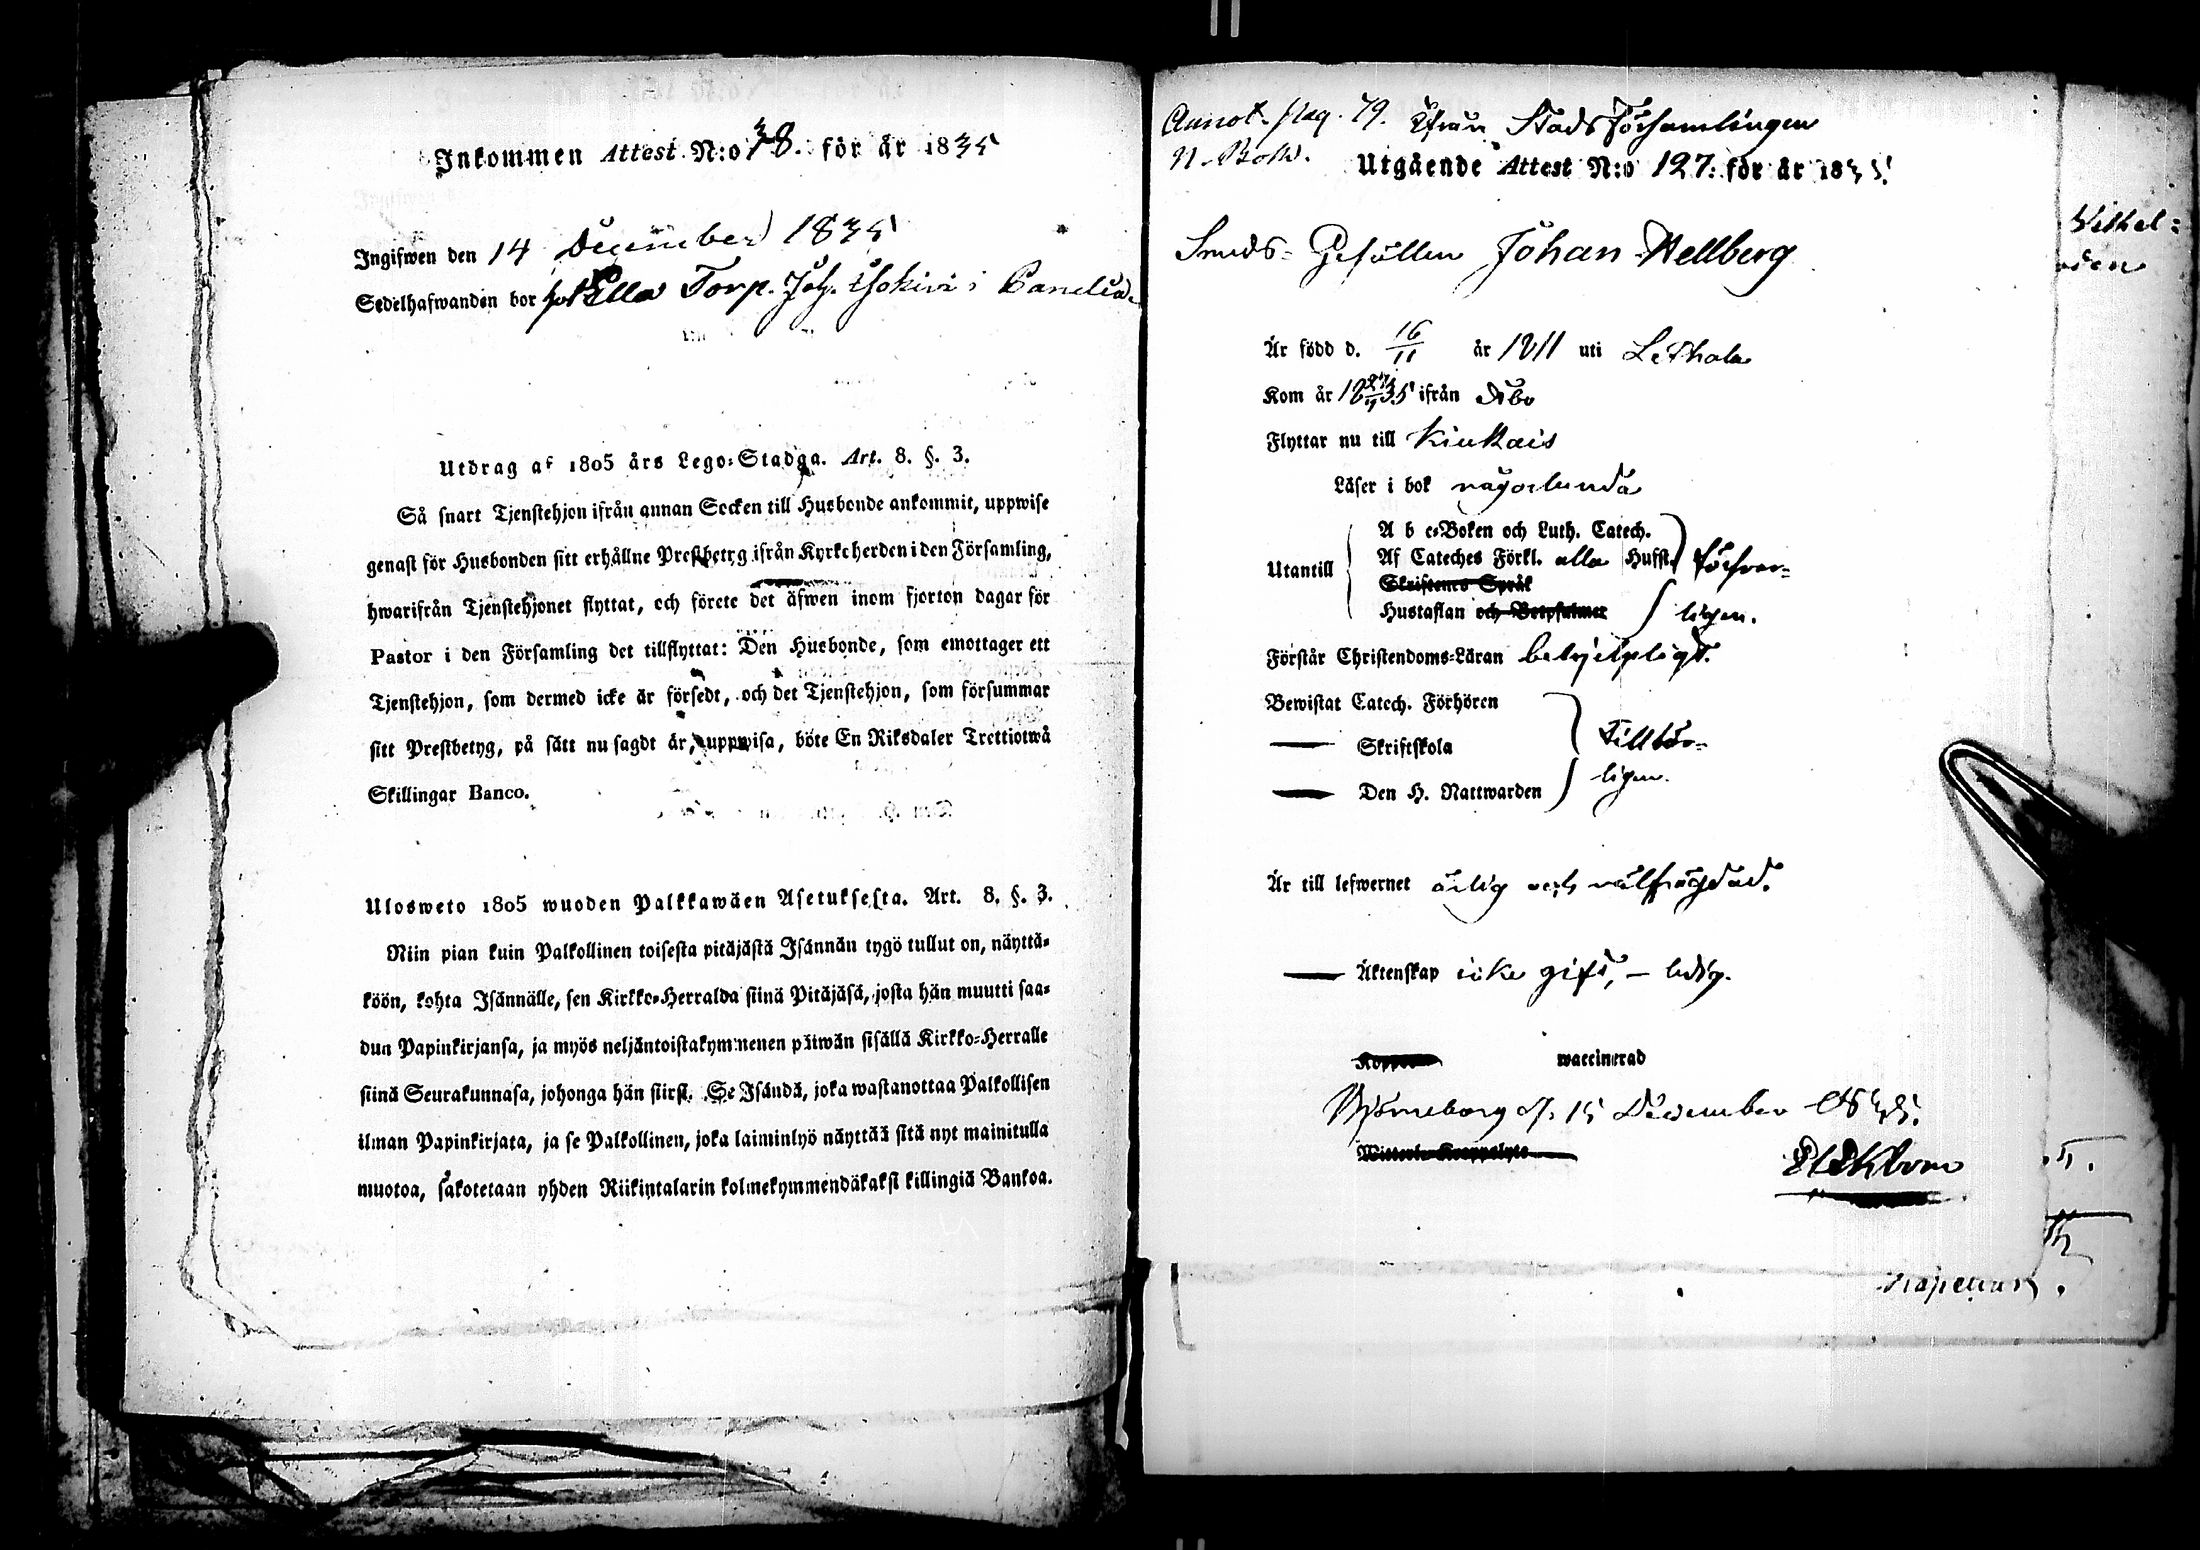 Inkommen Attest N:o 38. för år 1835
Ingifwen den 14 December 1835
Sedelhafwanden bor på Ella Torp. Joh. Isokivi i Panelia.
Utdrag af 1805 års Lego-Stadga. Art. 8. §. 3.
Så snart Tjenstehjon ifrån annan Socken till Husbonde ankommit, uppwise
genast för Husbonden sitt erhållne Prestbetyg ifrån Kyrkoherden i den Församling,
hwarifrån Tjenstehjonet flyttat, och förete det äfwen inom fjorton dagar för
Pastor i den Församling det tillflyttat: Den Husbonde, som emottager ett
Tjenstehjon, som dermed icke är försedt, och det Tjenstehjon, som försummar
sitt Prestbetyg, på sätt nu sagdt är, uppwisa, böte En Riksdaler Trettiotwå
Skillingar Banco.
Ulosweto 1805 wuoden Palkkawäen Asetuksesta. Art. 8. §. 3.
Niin pian kuin Palkollinen toisesta pitäjästä Isännän tygö tullut on, näyttä-
köön, kohta Isännälle, sen Kirkko-Herralda siinä Pitäjäsä, josta hän muutti saa-
dun Papinkirjansa, ja myös neljäntoistakymmenen päiwän sisällä Kirkko-Herralle
siinä Seurakunnasa, johonga hän siirsi. Se Isändä, joka wastanottaa Palkollisen
ilman Papinkirjata, ja se Palkollinen, joka laiminlyö näyttää sitä nyt mainitulla
muotoa, sakotetaan yhden Riikintalarin kolmekymmendäkaksi killingiä Bankoa.
Annot. pag. 79. Ifrån Stads församlingen
N. Bok.
Utgående Attest N:o 127. för år 1835.
Smeds-Gesällen Johan Hellberg
Är född d. 16/11 år 1811 uti Lethala
Kom år 1835 ifrån Åbo
Flyttar nu till Kiukais
Läser i bok någorlunda
A b c-Boken och Luth. Catech.
Utantill Af Cateches Förkl. alla Hufst. försvar-
Skriftenes Språk
Hustaflan och Botpsalmer ligen.
Förstår Christendoms-Läran behjelpligt.
Bewistat Catech. Förhören
— Skriftskola Tillbör-
— Den H. Nattwarden ligen.
Är till lefwernet ärlig och välfrägdad.
— Äktenskap icke gift, – ledig.
Koppor waccinerad
Björneborg d. 15 December 1835.
Witterl. Kroppslyte
Ekbom
Wilhel-